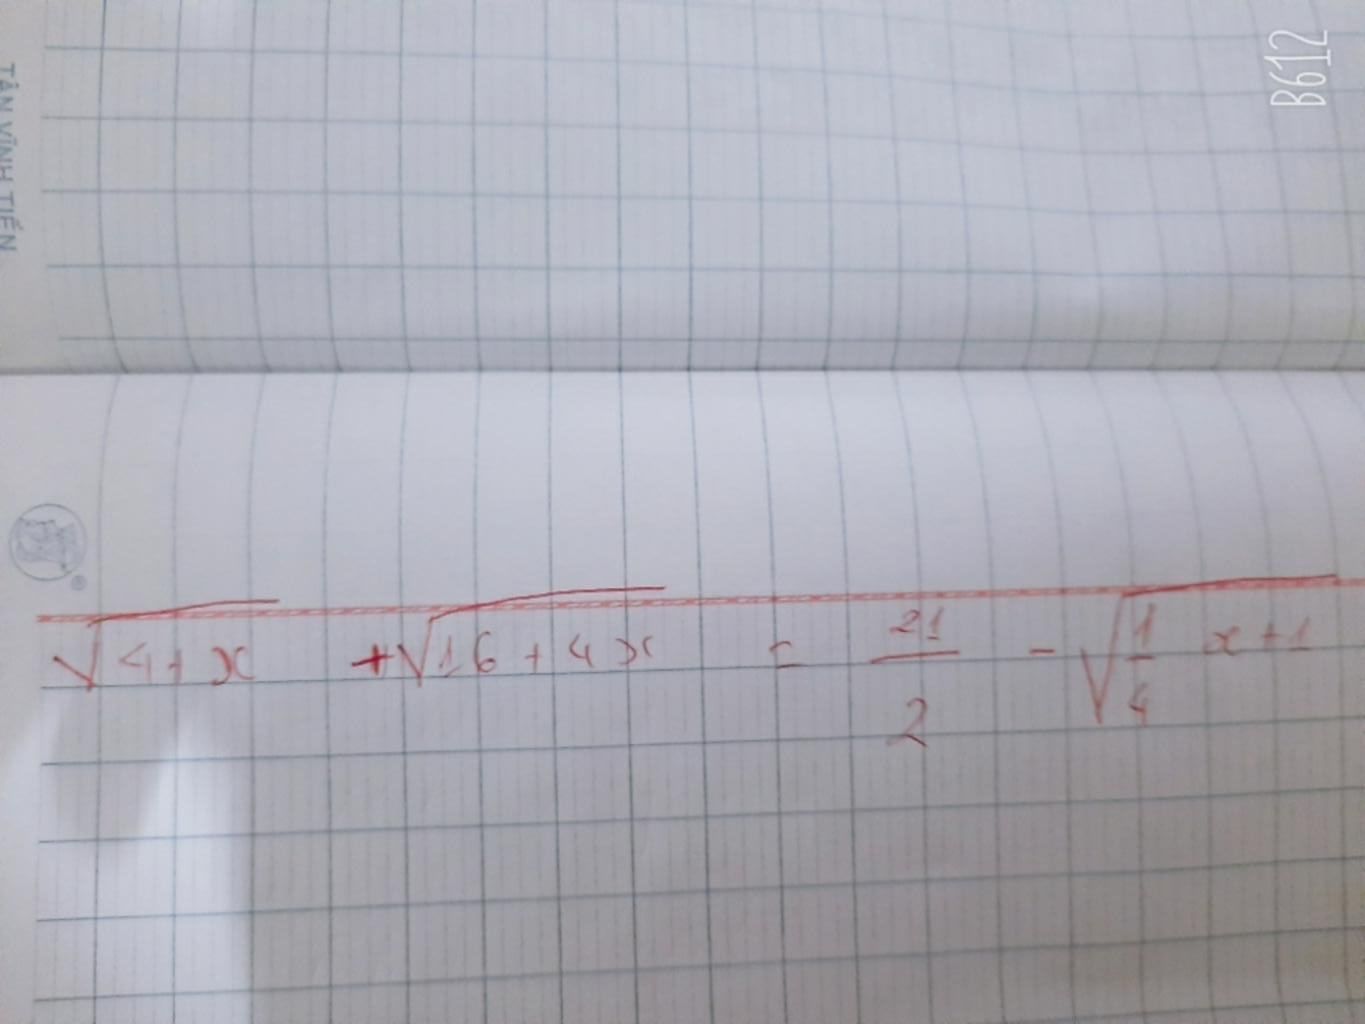 TÂN VĨNH TIẾN
B612
√(4+x) + √(16+4x) = 21/2 - √(1/4 x+1)